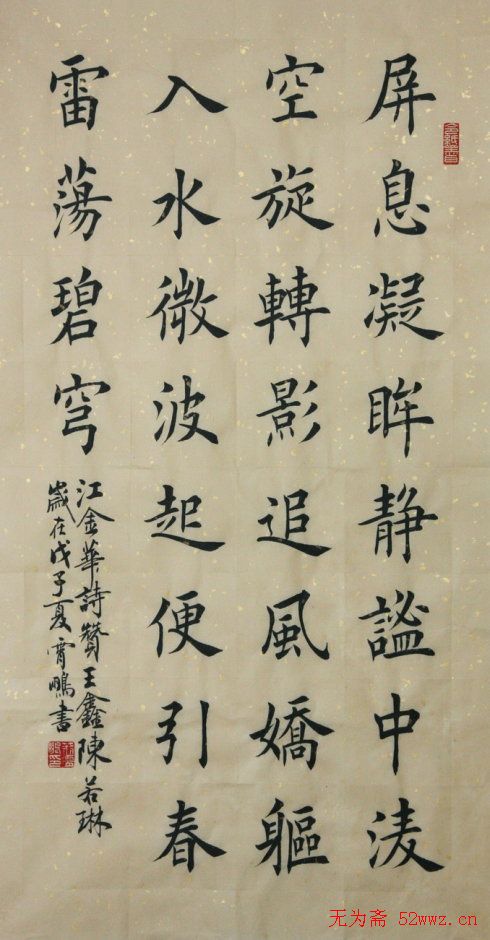 屏息凝眸静謐中淩
空旋轉影追風嬌軀
入水微波起便引春
雷蕩碧穹
江金華詩贊王鑫陳若琳
歲在戊子夏霄鵬書
无为斋 52wwz.cn